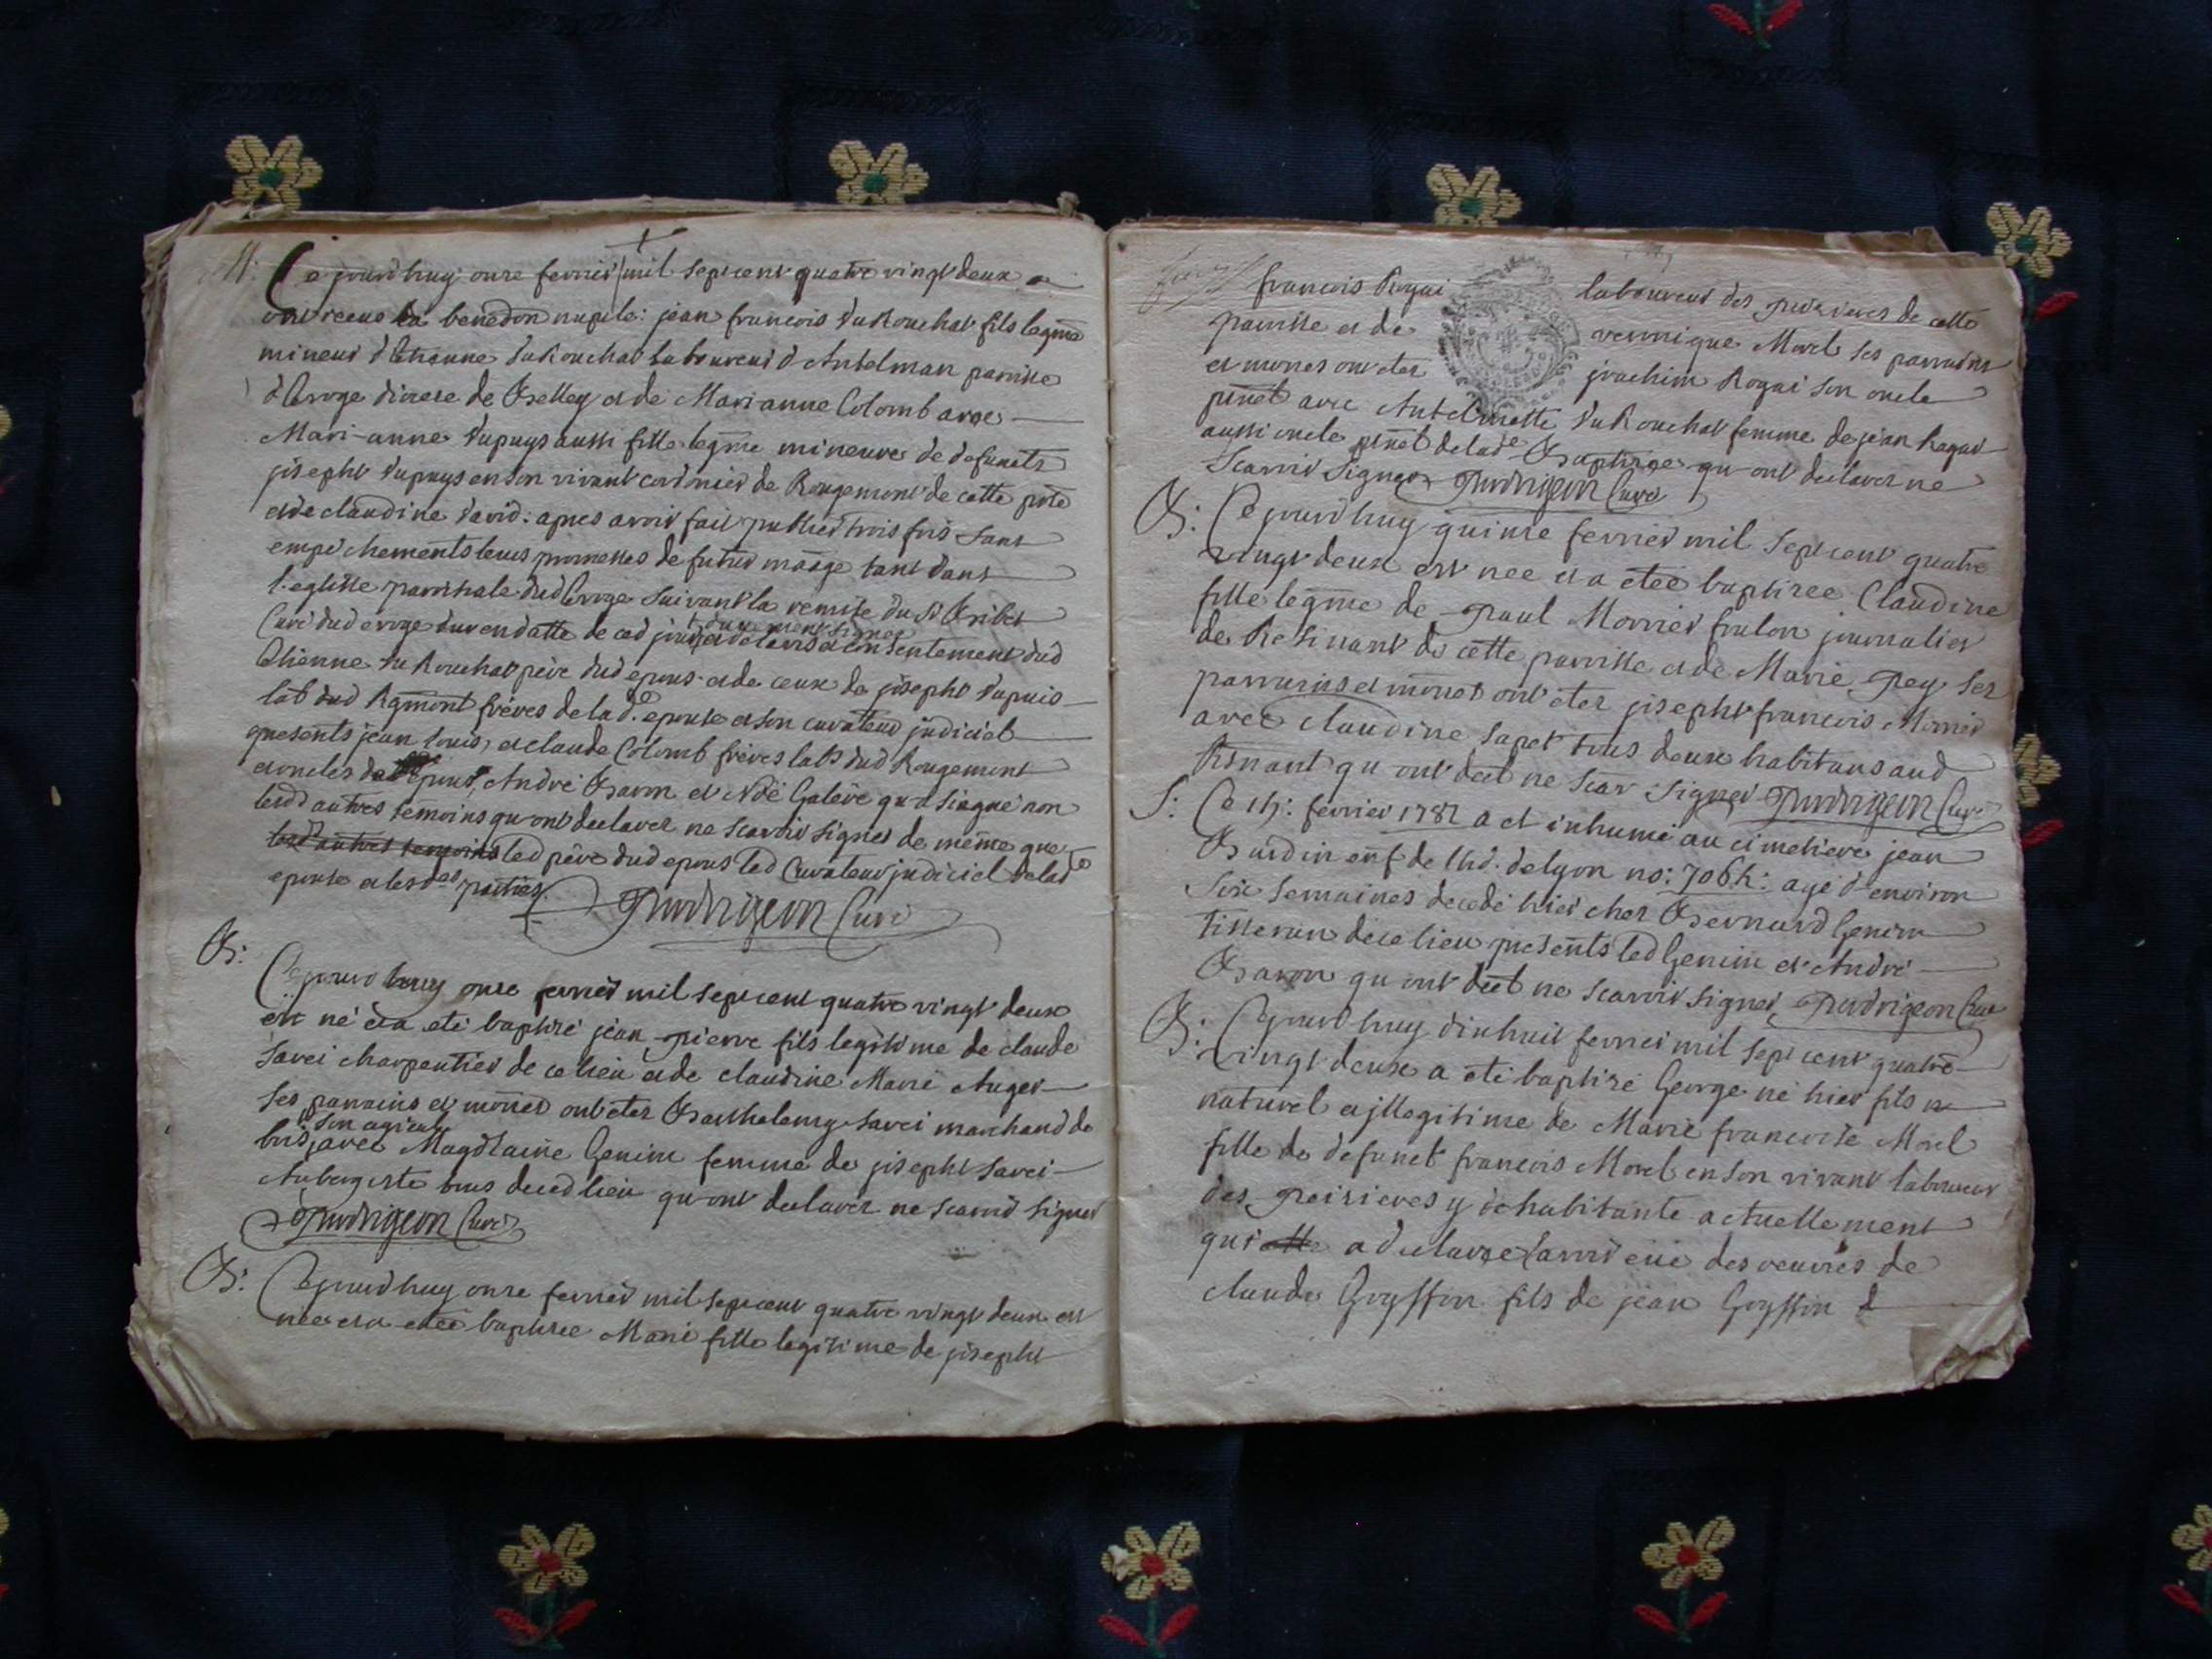 M: Ce jourd'huy onze fevrier mil sept cent quatre vingt deux
ont receus la benedon nuptle: jean francois DuRouchat fils legme
mineur d'Etienne DuRouchat laboureur d'Antelman parrisse
d'Evoge diocese de Belley et de Marianne Colomb avec
Mari-anne Dupuys aussi fille legme mineure de defuncts
joseph Dupuys en son vivant cordonier de Rougemont de cette prse
et de claudine David: apres avoir fait publier trois fois sans
empechements leurs promesses de futur marge tant dans
l'eglisse parrissiale dud Evoge suivant la remise du Sr Bribet
Curé dud evoge en datte de ced jour duement signee et de l'avis et consentement dud
Etienne DuRouchat père dud epoux et de ceux de joseph Dupuis
lab dud Rgmont frères de lad.e epouse et son curateur judiciel
presents jean louis, et claude Colomb frères labs dud Rougemont
et oncles de epoux, André Baron et Noë Galere qui a siagné non
lesd autres temoins qu'ont declarer ne scavoir signer de même que
lesd autres temoins led père dud epoux led Curateur judiciel de lade
epouse et lesdes parties. Prudrigeon Curé
B: Ce jourd'huy onze fevrier mil sept cent quatre vingt deux
est né et a eté baptizé jean-pierre fils legitime de claude
Savei charpentier de ce lieu et de claudine Marie Auger
ses parrains et mores ont eter Barthelemy Savei marchand de
bois son ayeul avec Magdlaine Genin femme de joseph Savei
Aubergiste tous deced lieu qu'ont declarer ne scavoir signer
Prudrigeon Curé
B: Ce jourd'huy onze fevrier mil sept cent quatre vingt deux est
née et a etée baptizee Marie fille legitime de joseph
francois Rogai laboureur des peizieres de cette
parrisse et de veronique Morel ses parrains
et mores ont eter joachim Rogai son oncle
psnet avec Antelmette DuRouchat femme de jean Rogai
aussi oncle psnet de lade Baptizee qu'ont declarer ne
Scavoir signer Prudrigeon Curé
B: Ce jourd'huy quinze fevrier mil sept cent quatre
vingt deux est née et a etée baptizee Claudine
fille legme de Paul Morrier foulon journalier
de Resinant de cette parrisse et de Marie Pey ses
parrains et mores ont eter joseph francois Morrier
avec claudine sapet tous deux habitans aud
Rsnant qu'ont dect ne scav signer Prudrigeon Curé
S: Ce 15: fevrier 1782 a et inhumé au cimetiere jean
Burdin enf de lhd. de lyon no: 706 agé d'environ
six semaines decedé hier chez Bernard Genin
tisseran de ce lieu presents led Genin et André
Baron qu'ont dect ne scavoir signer Prudrigeon Curé
B: Ce jourd'huy dixhuit fevrier mil sept cent quatre
vingt deux a eté baptizé George né hier fils
naturel et jllegitime de Marie francoise Morel
fille de defunct francois Morel en son vivant laboureur
des peizieres y dehabitante actuellement
qui a declaree l'avoir eüe des oeuvres de
claude Goyffon fils de jean Goyffon d